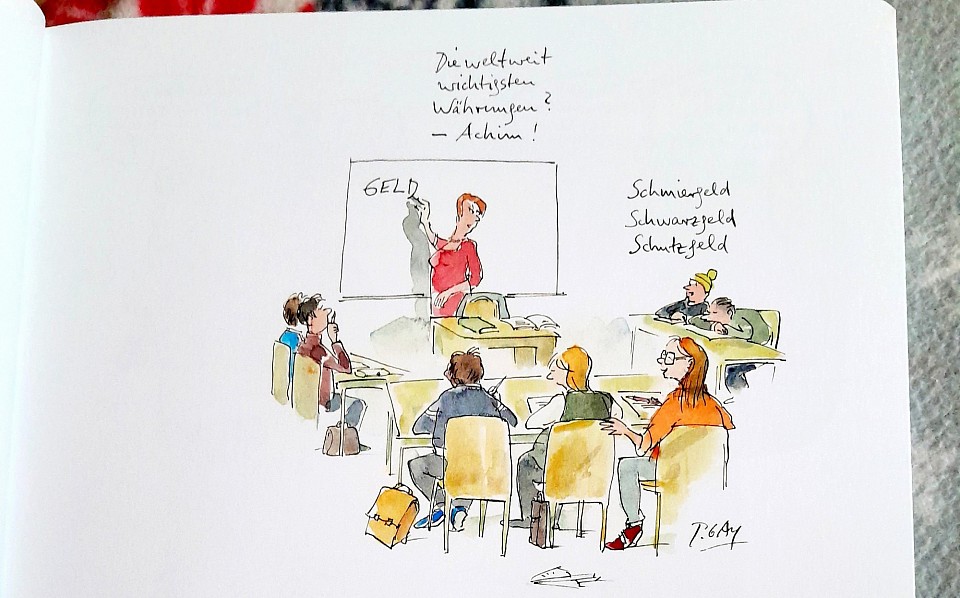 Die weltweit
wichtigsten
Währungen?
– Achim!
GELD
Schmiergeld
Schwarzgeld
Schutzgeld
T. GAY